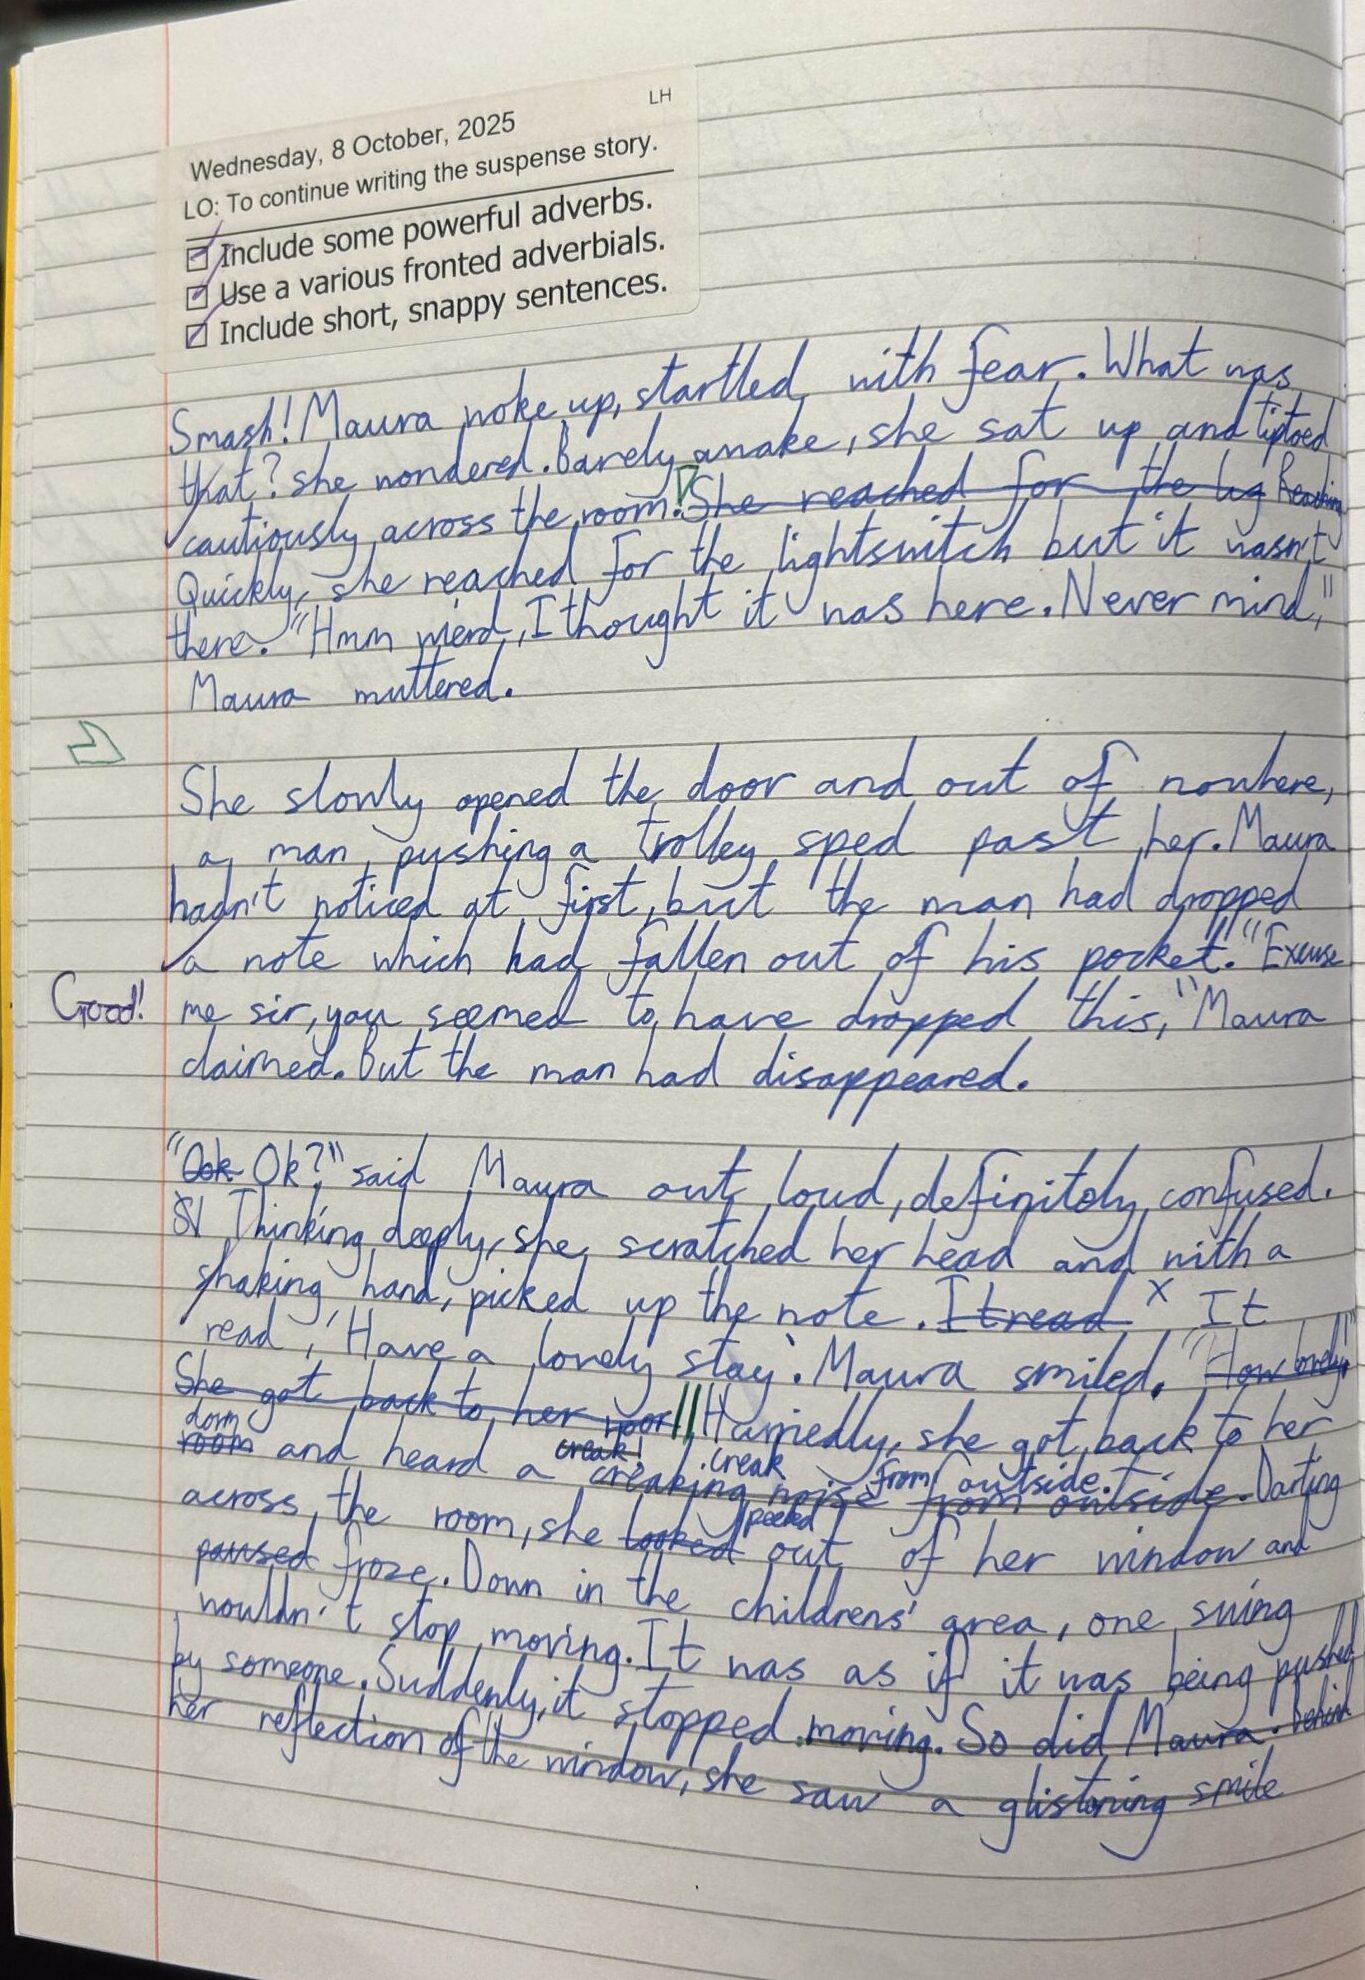 LH
Wednesday, 8 October, 2025
LO: To continue writing the suspense story.
☑ Include some powerful adverbs.
☑ Use a various fronted adverbials.
☑ Include short, snappy sentences.
Smash! Maura woke up, startled with fear. What was
that? she wondered. Barely awake, she sat up and tiptoed
cautiously across the room. She reached for the lig Reaching
Quickly, she reached for the lightswitch but it wasn't
there. "Hmm wierd, I thought it was here. Never mind,"
Maura muttered.
She slowly opened the door and out of nowhere,
a man pushing a trolley sped past her. Maura
hadn't noticed at first, but the man had dropped
a note which had fallen out of his pocket. "Excuse
Good!
me sir, you seemed to have dropped this," Maura
claimed. But the man had disappeared.
"Ook Ok?" said Maura out loud, definitely confused.
Thinking deeply, she scratched her head and with a
shaking hand, picked up the note. It read x It
read, 'Have a lovely stay'. Maura smiled. "How lovely!"
She got back to her room // Hurriedly, she got back to her
dorm
room and heard a creak! creaking noise from outside. Darting
creak from outside.
across the room, she looked peeked out of her window and
paused froze. Down in the childrens' area, one swing
wouldn't stop moving. It was as if it was being pushed
by someone. Suddenly, it stopped moving. So did Maura. Behind
her reflection of the window, she saw a glistening smile